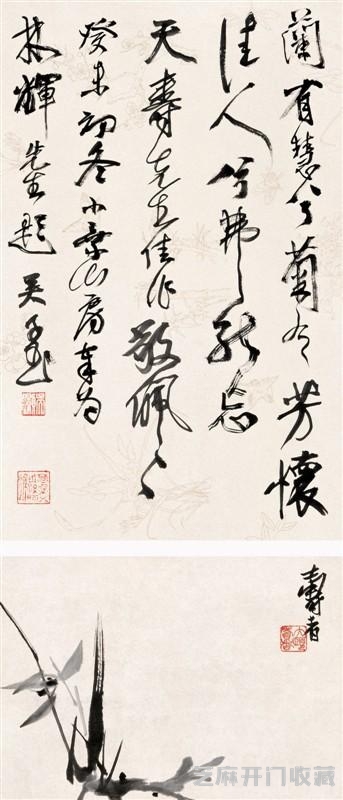 蘭有慧兮菊有芳懷
佳人兮弗能忘
天壽先生佳作敬佩々
癸未初冬小山房奉为
林輝先生題 吴
壽者
芝麻开门收藏